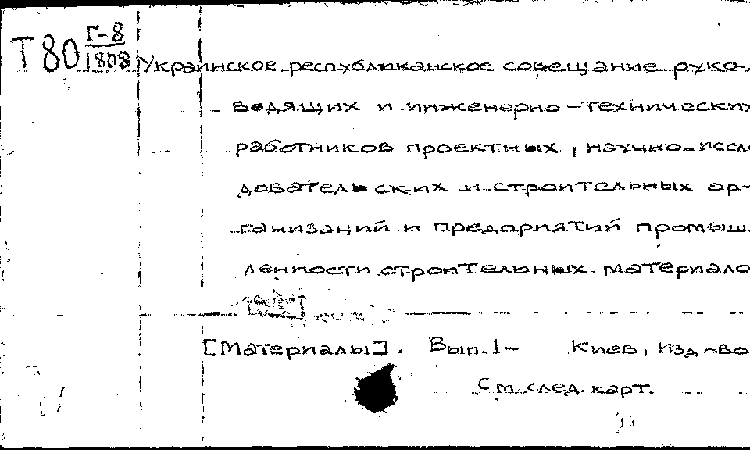 Т80 Г-8
1808
Украинское республиканское совещание руко-
водящих и инженерно-технических
работников проектных, научно-иссле
довательских и строительных ор-
ганизаций и предприятий промыш-
ленности строительных материало
[Материалы]. Вып. 1- Киев, Изд-во
См. след. карт.